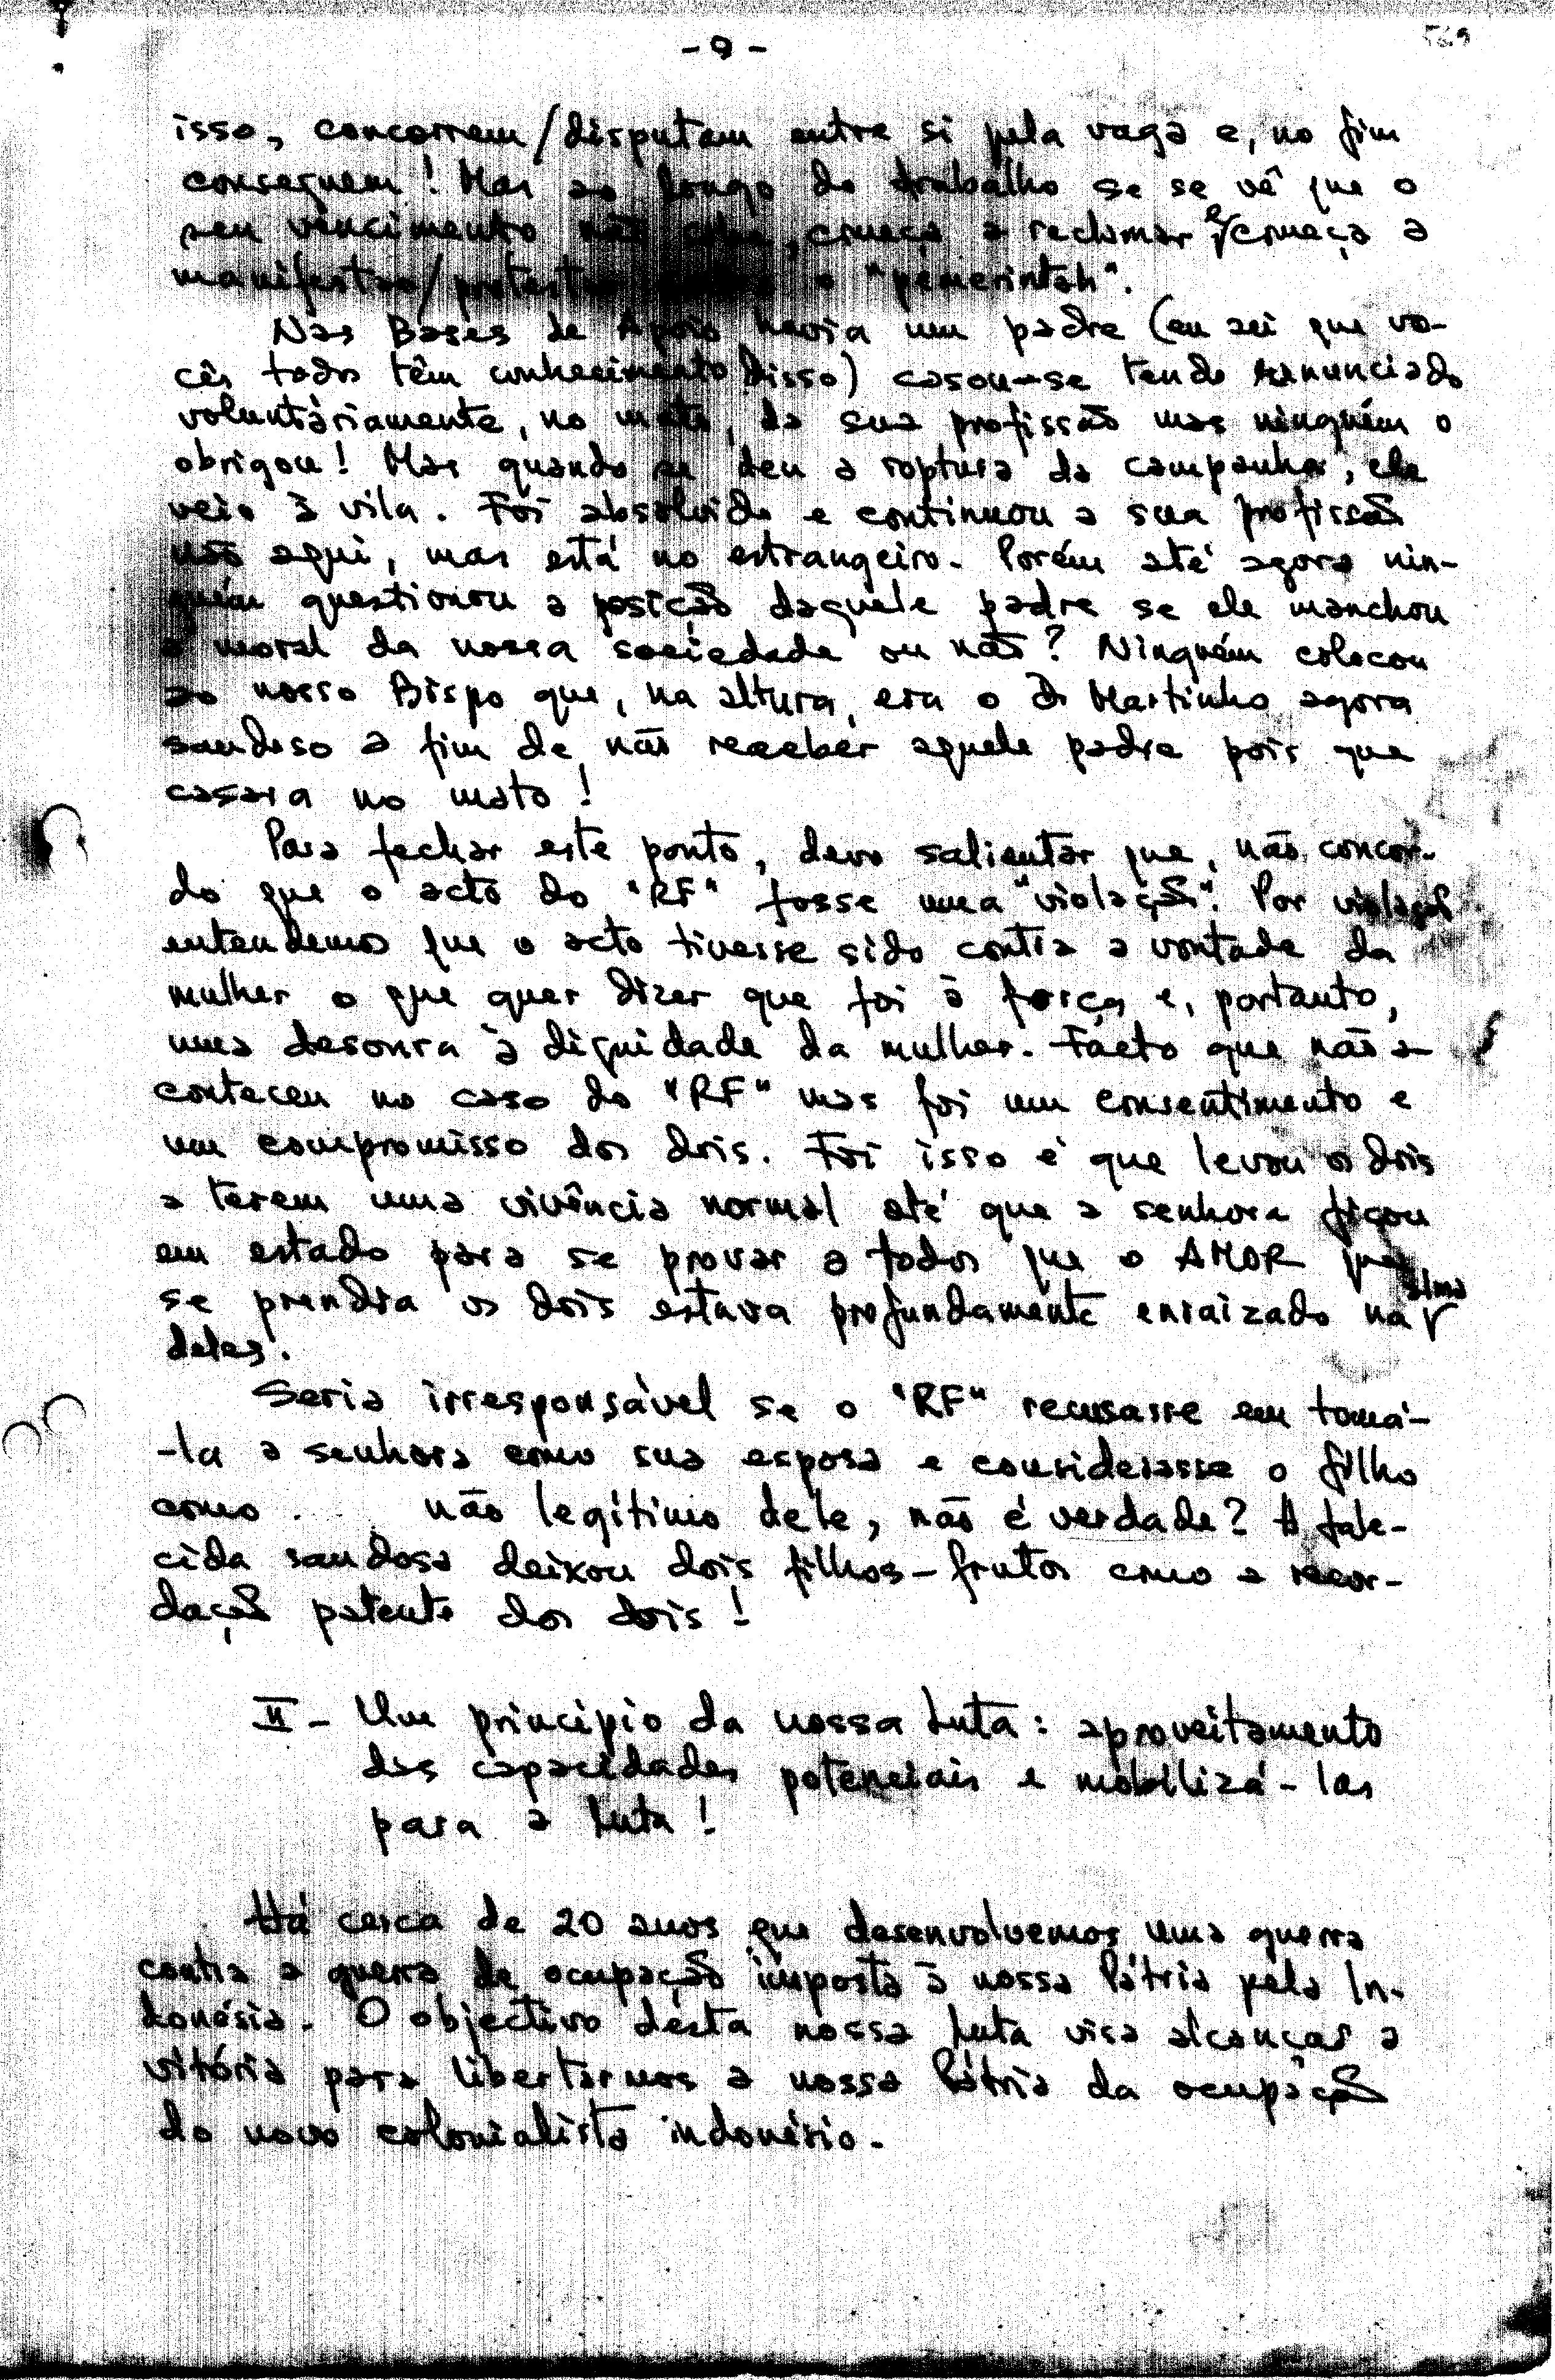 - 9 -
isso, concorrem/disputam entre si pela vaga e, no fim
conseguem! Mas ao longo do trabalho se se vê que o
seu vencimento não , começa a reclamar e começa a
manifestar/protestar o "pemerintah".
Nas Bases de Apoio havia um padre (eu sei que vo-
cês todos têm conhecimento disso) casou-se tendo renunciado
voluntáriamente, no mato, da sua profissão mas ninguém o
obrigou! Mas quando se deu a roptura da campanha, ele
veio à vila. Foi absolvido e continuou a sua profissão
não aqui, mas está no estrangeiro. Porém até agora nin-
guém questionou a posição daquele padre se ele manchou
a moral da nossa sociedade ou não? Ninguém colocou
ao nosso Bispo que, na altura, era o D. Martinho agora
saudoso a fim de não receber aquele padre pois que
casara no mato!
Para fechar este ponto, devo salientar que, não concor-
do que o acto do "RF" fosse uma "violação". Por violação
entendemos que o acto tivesse sido contra a vontade da
mulher o que quer dizer que foi à força e, portanto,
uma desonra à dignidade da mulher. Facto que não a-
conteceu no caso do "RF" mas foi um consentimento e
um compromisso dos dois. Foi isso é que levou os dois
a terem uma vivência normal até que a senhora ficou
em estado para se provar a todos que o AMOR que
se prendia os dois estava profundamente enraizado na alma
deles.
Seria irresponsável se o "RF" recusasse em tomá-
-la a senhora como sua esposa e considerasse o filho
como ... não legítimo dele, não é verdade? A fale-
cida saudosa deixou dois filhos-frutos como a recor-
dação patente dos dois!
II - Um princípio da nossa Luta: aproveitamento
das capacidades potenciais e mobilizá-las
para a Luta!
Há cerca de 20 anos que desenvolvemos uma guerra
contra a guerra de ocupação imposta à nossa Pátria pela In-
donésia. O objectivo desta nossa Luta visa alcançar a
vitória para libertarmos a nossa Pátria da ocupação
do novo colonialista indonésio.